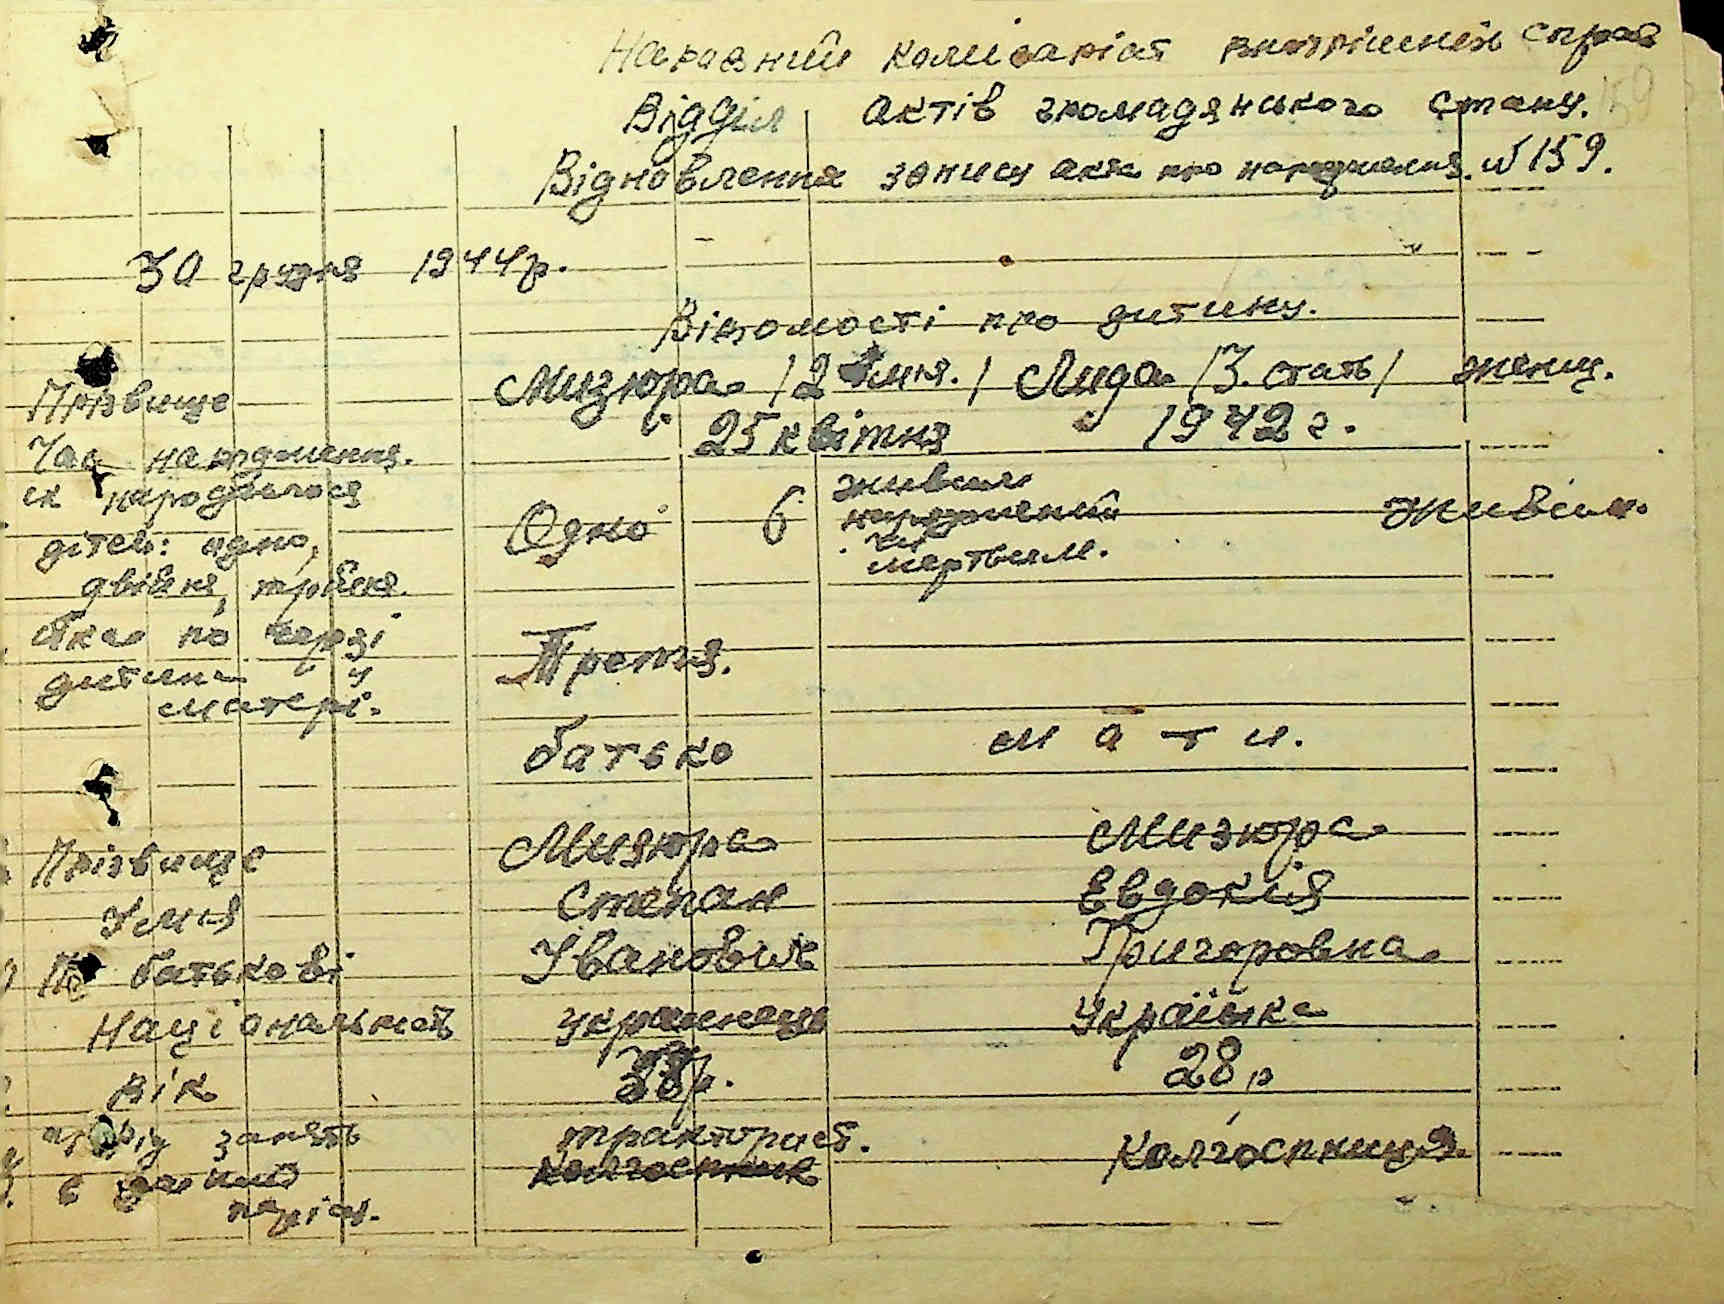 Народний комісаріат внутрішніх справ
Відділ актів громадянського стану.
Відновлення запису акта про народження. № 159.
30 грудня 1944 р.
Відомості про дитину.
Прізвище Мизюра /2 Імя./ Лида /3. стать/ женщ.
Час народження. 25 квітня 1942 г.
ск народилося
дітей: одно, Одно 6 живим народжений чи мертвим. живим.
двійня, трійня.
Яка по черзі
дитина у Третя.
матері.
батько мати.
Прізвище Мизюра Мизюра
Імия Степан Евдокія
По батькові Іванович Григоровна
Національність украинець Українка
Вік 28 р
рід занять тракторист. Колгоспниця.
в даний колгоспник
період.